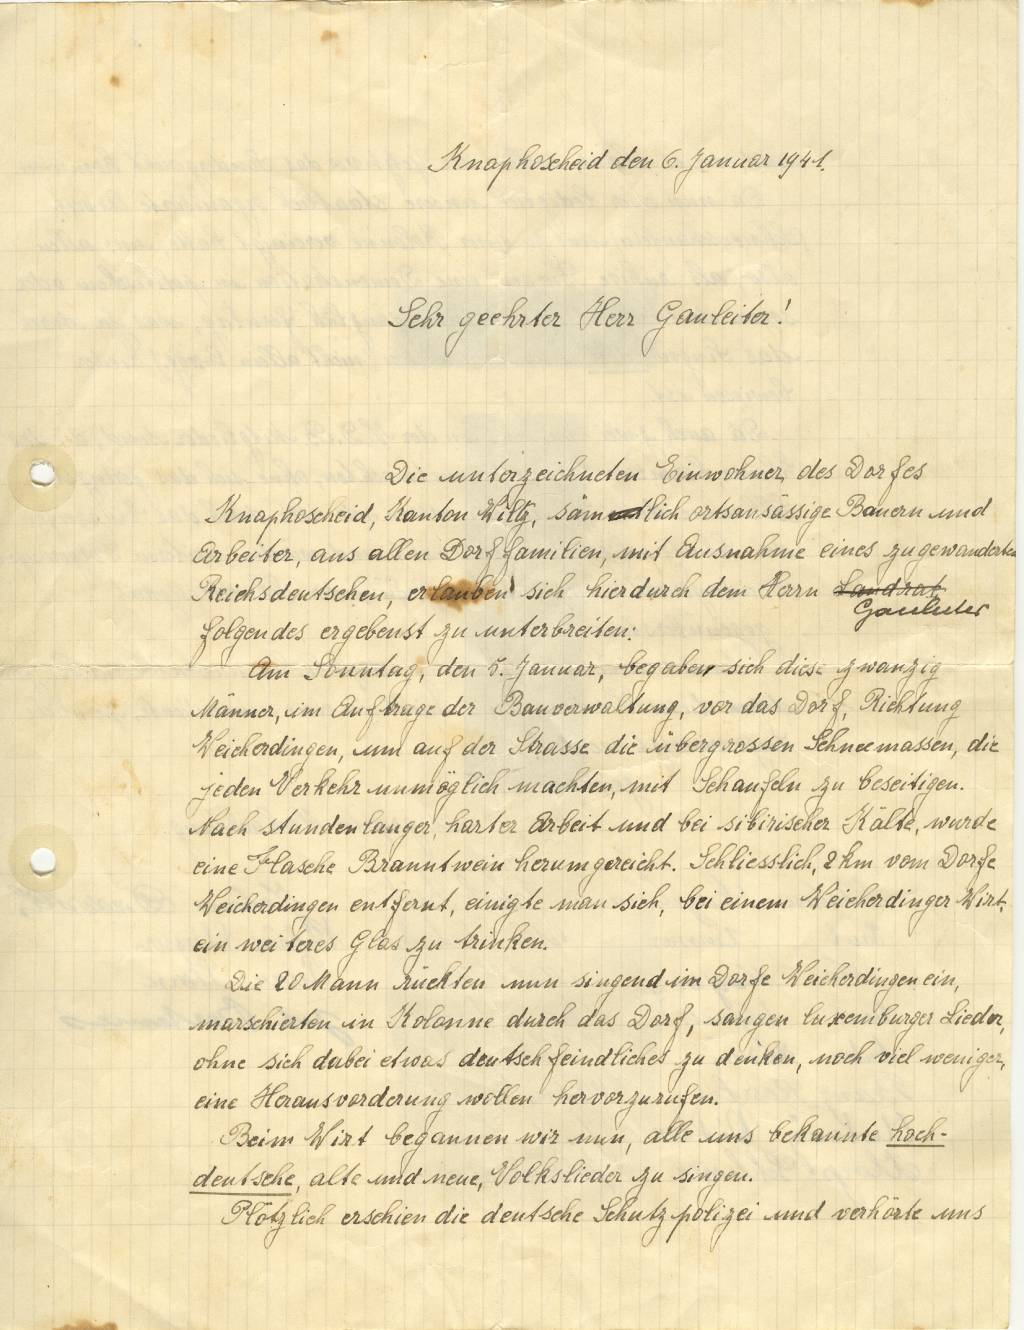 Knaphoscheid den 6. Januar 1941.
Sehr geehrter Herr Gauleiter!
Die unterzeichneten Einwohner, des Dorfes
Knaphoscheid, Kanton Wiltz, sämtlich ortsansässige Bauern und
Arbeiter, aus allen Dorffamilien, mit Ausnahme eines zugewanderten
Reichsdeutschen, erlauben sich hierdurch dem Herrn Landrat
Gauleiter
folgendes ergebenst zu unterbreiten:
Am Sonntag, den 5. Januar, begaben sich diese zwanzig
Männer, im Auftrage der Bauverwaltung, vor das Dorf, Richtung
Weicherdingen, um auf der Strasse die übergrossen Schneemassen, die
jeden Verkehr unmöglich machten, mit Schaufeln zu beseitigen.
Nach stundenlanger, harter Arbeit und bei sibirischer Kälte, wurde
eine Flasche Branntwein herumgereicht. Schliesslich, 2 km vom Dorfe
Weicherdingen entfernt, einigte man sich, bei einem Weicherdinger Wirt,
ein weiteres Glas zu trinken.
Die 20 Mann rückten nun singend im Dorfe Weicherdingen ein,
marschierten in Kolonne durch das Dorf, sangen luxemburger Lieder,
ohne sich dabei etwas deutschfeindliches zu denken, noch viel weniger,
eine Herausvorderung wollen hervorzurufen.
Beim Wirt begannen wir nun, alle uns bekannte hoch-
deutsche, alte und neue, Volkslieder zu singen.
Plötzlich erschien die deutsche Schutzpolizei und verhörte uns